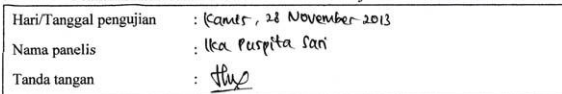 Hari/Tanggal pengujian : Kamis, 28 November 2013
Nama panelis : Ika Puspita Sari
Tanda tangan :